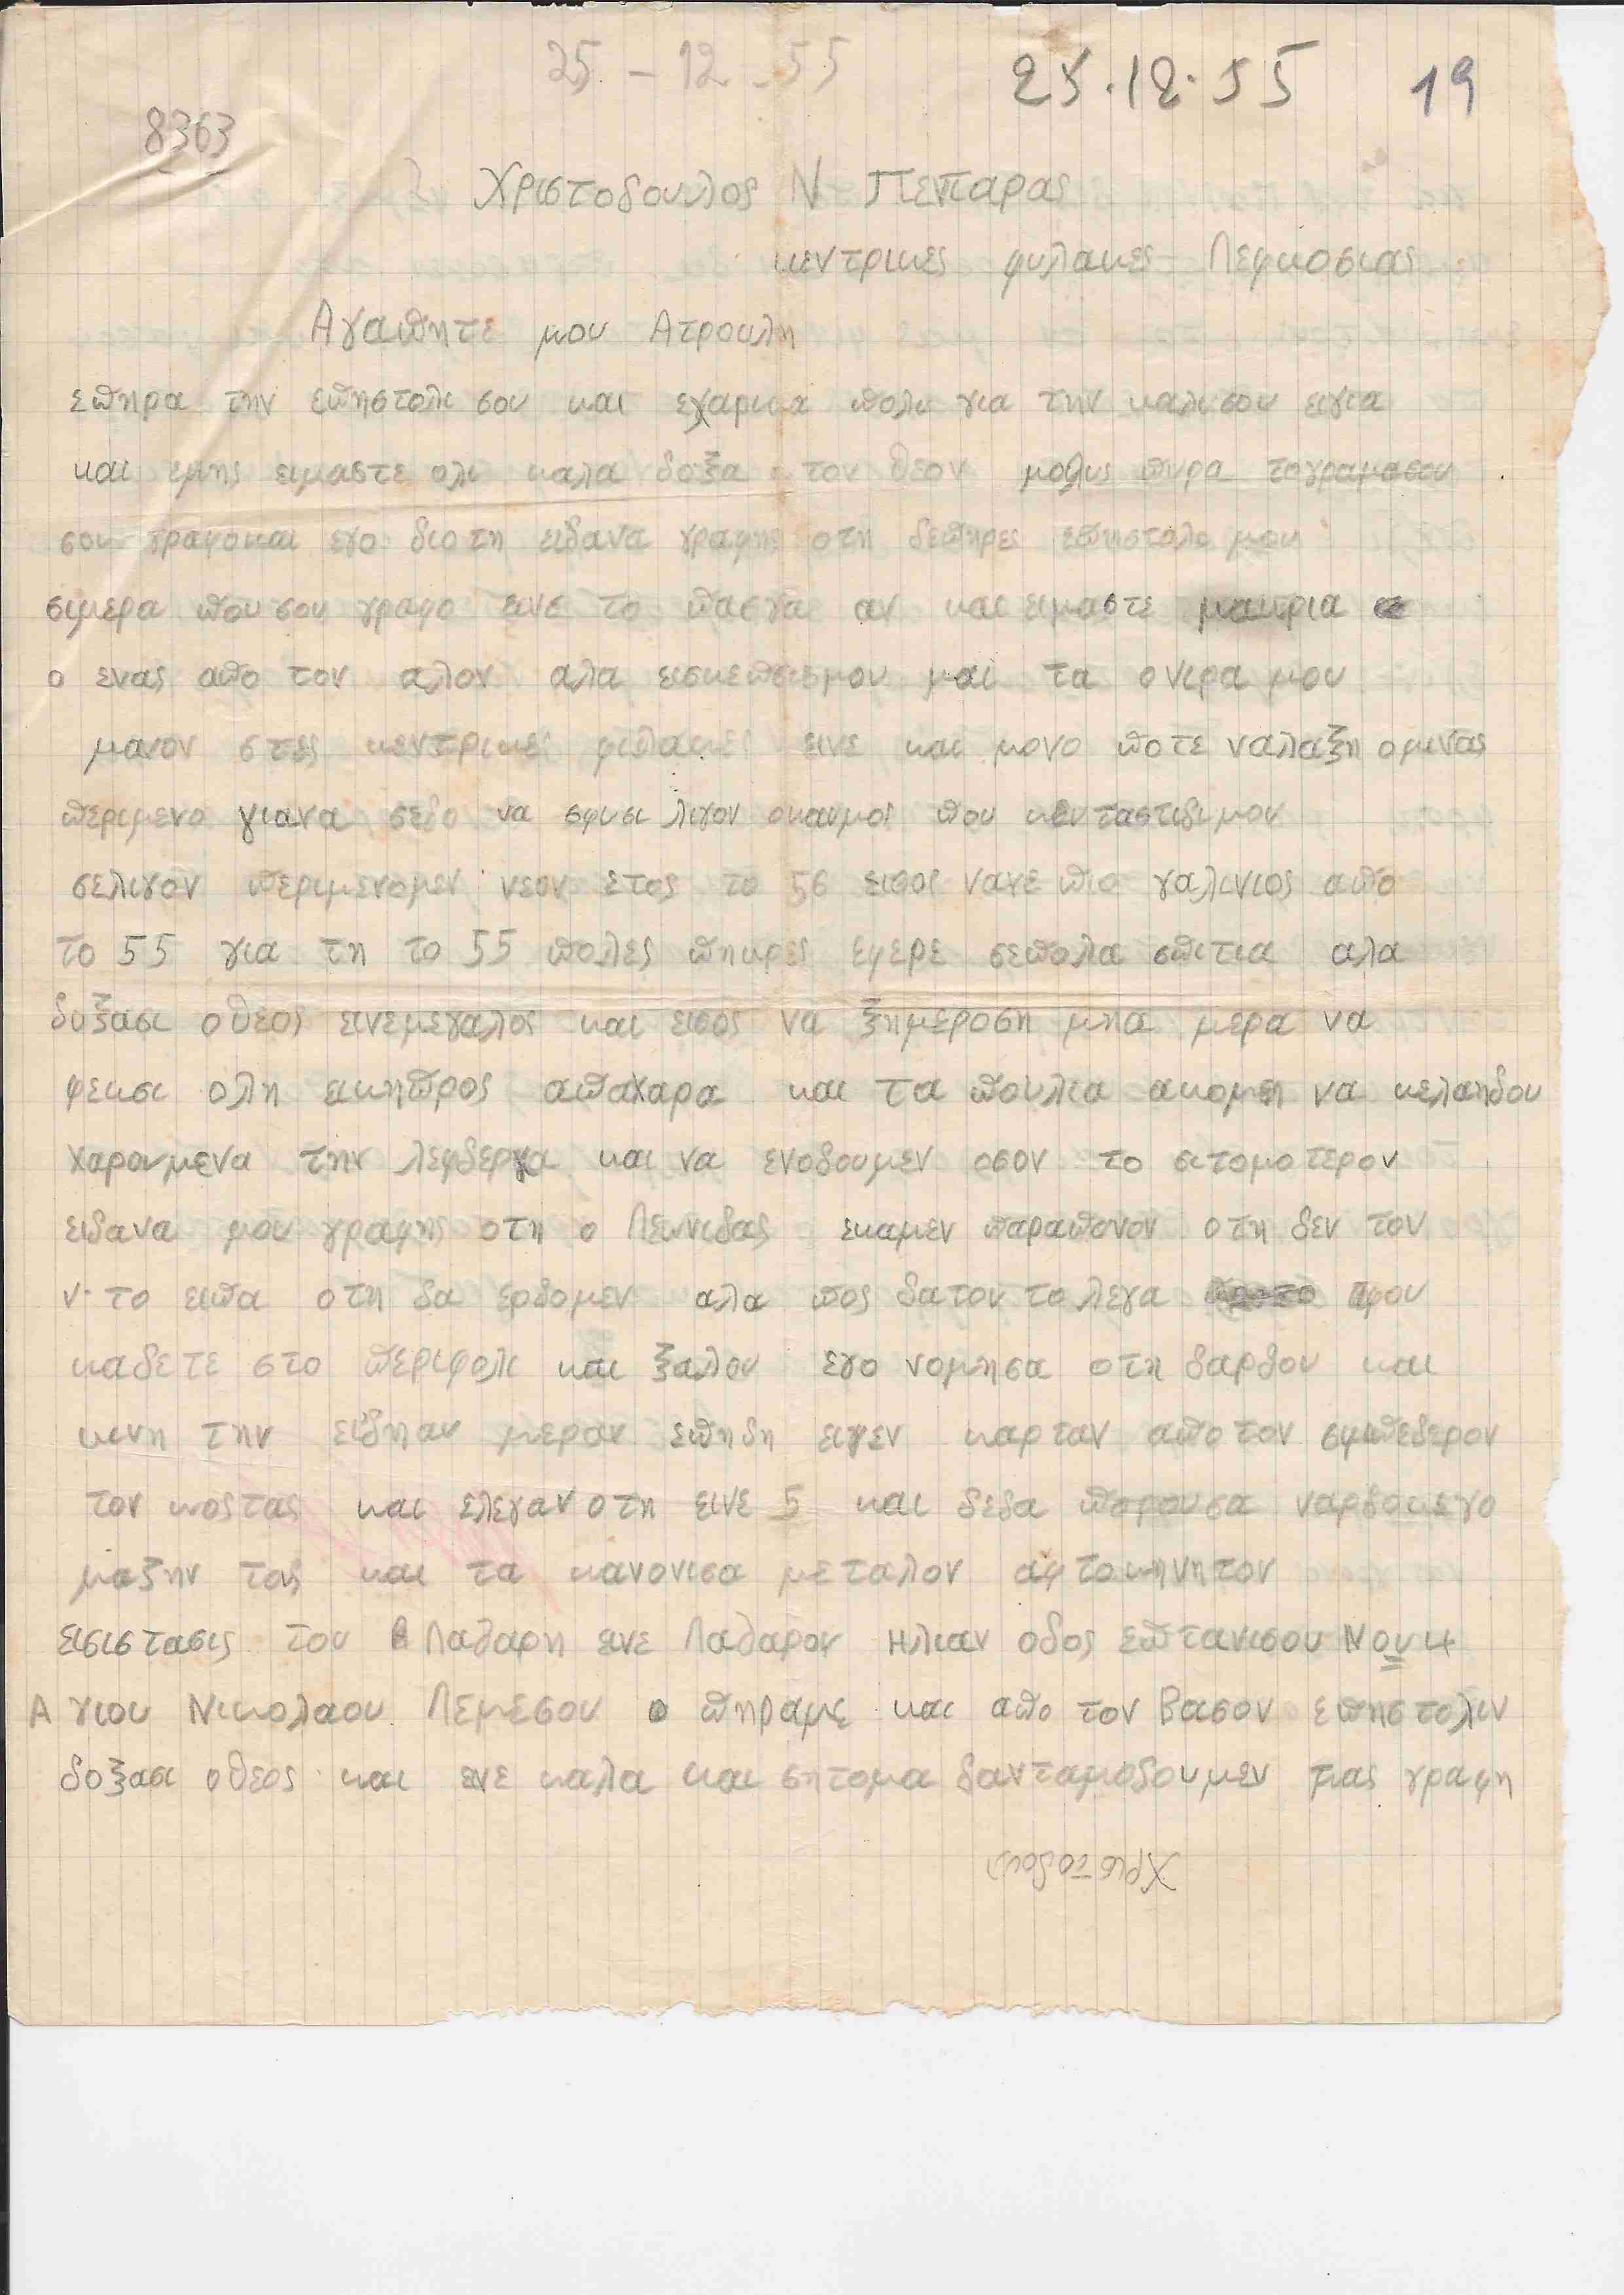 25 - 12 - 55
25.12.55 19
8363
Χριστοδουλος Ν Πεπαρας
κεντρικες φυλακες Λεφκοσιας
Αγαπητε μου Ατρουλη
επηρα την επηστολι σου και εχαρικα πολι για την καλισου ειγια
και εμης ειμαστε ολι καλα δοξα τον θεον μολις πιρα τογραμασου
σου γραφοκαι εγο διοτη ειδανα γραφης οτη δεπηρες επηστολι μου
σιμερα που σου γραφο εινε το πασχα αν και ειμαστε μακρια
ο ενας απο τον αλον αλα εισκεπσεισμου και τα ονιρα μου
μονον στες κεντρικες φιλακες εινε και μονο ποτε ναλαξη ομινας
περιμενο γιανα σεδο να σφισι λιγον οκαυμος που κενταστιδιμου
σελιγον περιμενομεν νεον ετος το 56 εισος νανε πιο γαλινιος απο
το 55 για τη το 55 πολες πηκρες εφερε σεπολα σπιτια αλα
δοξασι οθεος εινεμεγαλος και εισος να ξημεροση μηα μερα να
φεκσι ολη εικηπρος απαχαρα και τα πουλια ακομη να κελαηδου
χαρουμενα την λεφδεργα και να ενοδουμεν οσον το σιτομοτερον
ειδανα μου γραφης οτη ο Λεωνιδας εκαμεν παραπονον οτη δεν τον
ν. το ειπα οτη δα ερδομεν αλα πος δατον το λεγα αφου
καδετε στο περιφολι και ξαλου εγο νομησα οτη δαρδου και
κινη την ειδηαν μεραν επηδη ειχεν καρταν απο τον σιμπεδερον
τον κοστας και ελεγαν οτη εινε 5 και δεδα μπορουσα ναρδοκεγο
μαζην τους και τα κανονισα μεταλον αφτοκηνητον
εισιστασις του Λαζαρη εινε Λαζαρον Ηλιαν οδος επτανισου Νου 4
Αγιου Νικολαου Λεμεσου πηραμε και απο τον Βασον επηστολιν
δοξασι οθεος και εινε καλα και σητομα δανταμοδουμεν μας γραφη
Χριστοδου